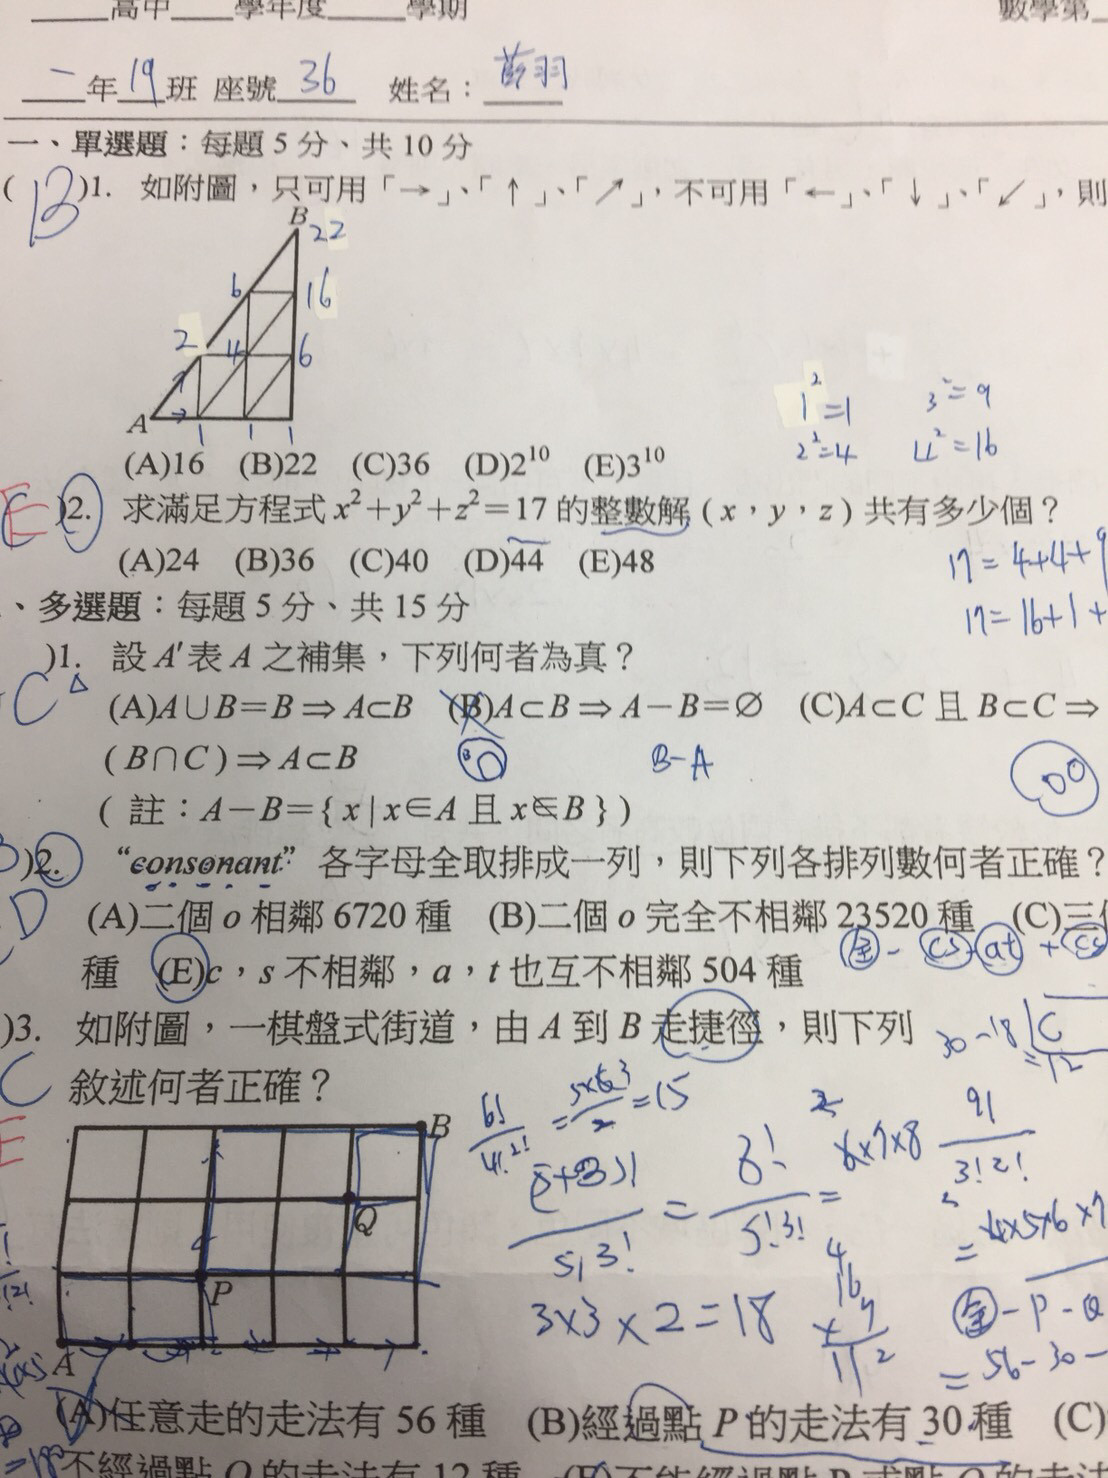 高中 學年度 學期 數學第
一年19班 座號36 姓名：
一、單選題：每題 5 分、共 10 分
( B )1. 如附圖，只可用「→」、「↑」、「↗」，不可用「←」、「↓」、「↙」，則
B 22
6 16
2 4 6
A 1 1 1
1²=1 3²=9
2²=4 4²=16
(A)16 (B)22 (C)36 (D)2¹⁰ (E)3¹⁰
E )2. 求滿足方程式 x²+y²+z²=17 的整數解 ( x，y，z ) 共有多少個？
(A)24 (B)36 (C)40 (D)44 (E)48
17 = 4+4+9
17= 16+1+
、多選題：每題 5 分、共 15 分
)1. 設 A′ 表 A 之補集，下列何者為真？
C
(A)A∪B=B⇒A⊂B (B)A⊂B⇒A－B=∅ (C)A⊂C 且 B⊂C⇒
( B∩C )⇒A⊂B
B-A
( 註：A－B={ x | x∈A 且 x∉B } )
)2. “consonant” 各字母全取排成一列，則下列各排列數何者正確？
D
(A)二個 o 相鄰 6720 種 (B)二個 o 完全不相鄰 23520 種 (C)三
全 - cs - at + cs
種 (E)c，s 不相鄰，a，t 也互不相鄰 504 種
)3. 如附圖，一棋盤式街道，由 A 到 B 走捷徑，則下列
30-18
=12
C 敘述何者正確？
E
B
Q
P
A
6!/4!2! = 5×6×3/2 = 15
(5+3)!/5!3! = 8!/5!3! =
6×7×8
9!/3!2!
3×3×2=18
全-P-Q
= 56-30-
(A)任意走的走法有 56 種 (B)經過點 P 的走法有 30 種 (C)
不經過點 Q 的走法有 12 種